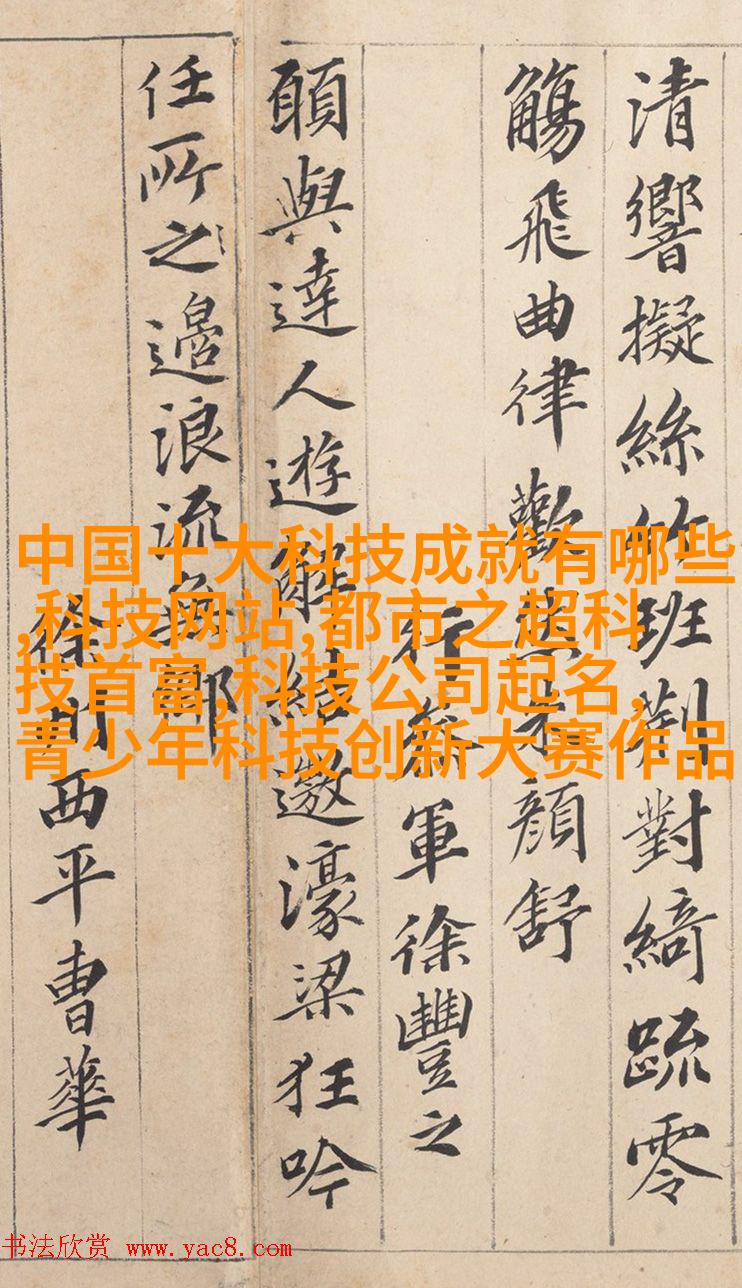 清響擬絲竹班荆對綺疏零
觴飛曲律歡然朱顏舒
行參軍徐豐之
願與達人遊解結遨濠梁狂吟
任所之邉浪流無鄉
徐州西平曹華
中国十大科技成就有哪些
,科技网站,都市之超科
技首富,科技公司起名,
青少年科技创新大赛作品
书法欣赏 www.yac8.com